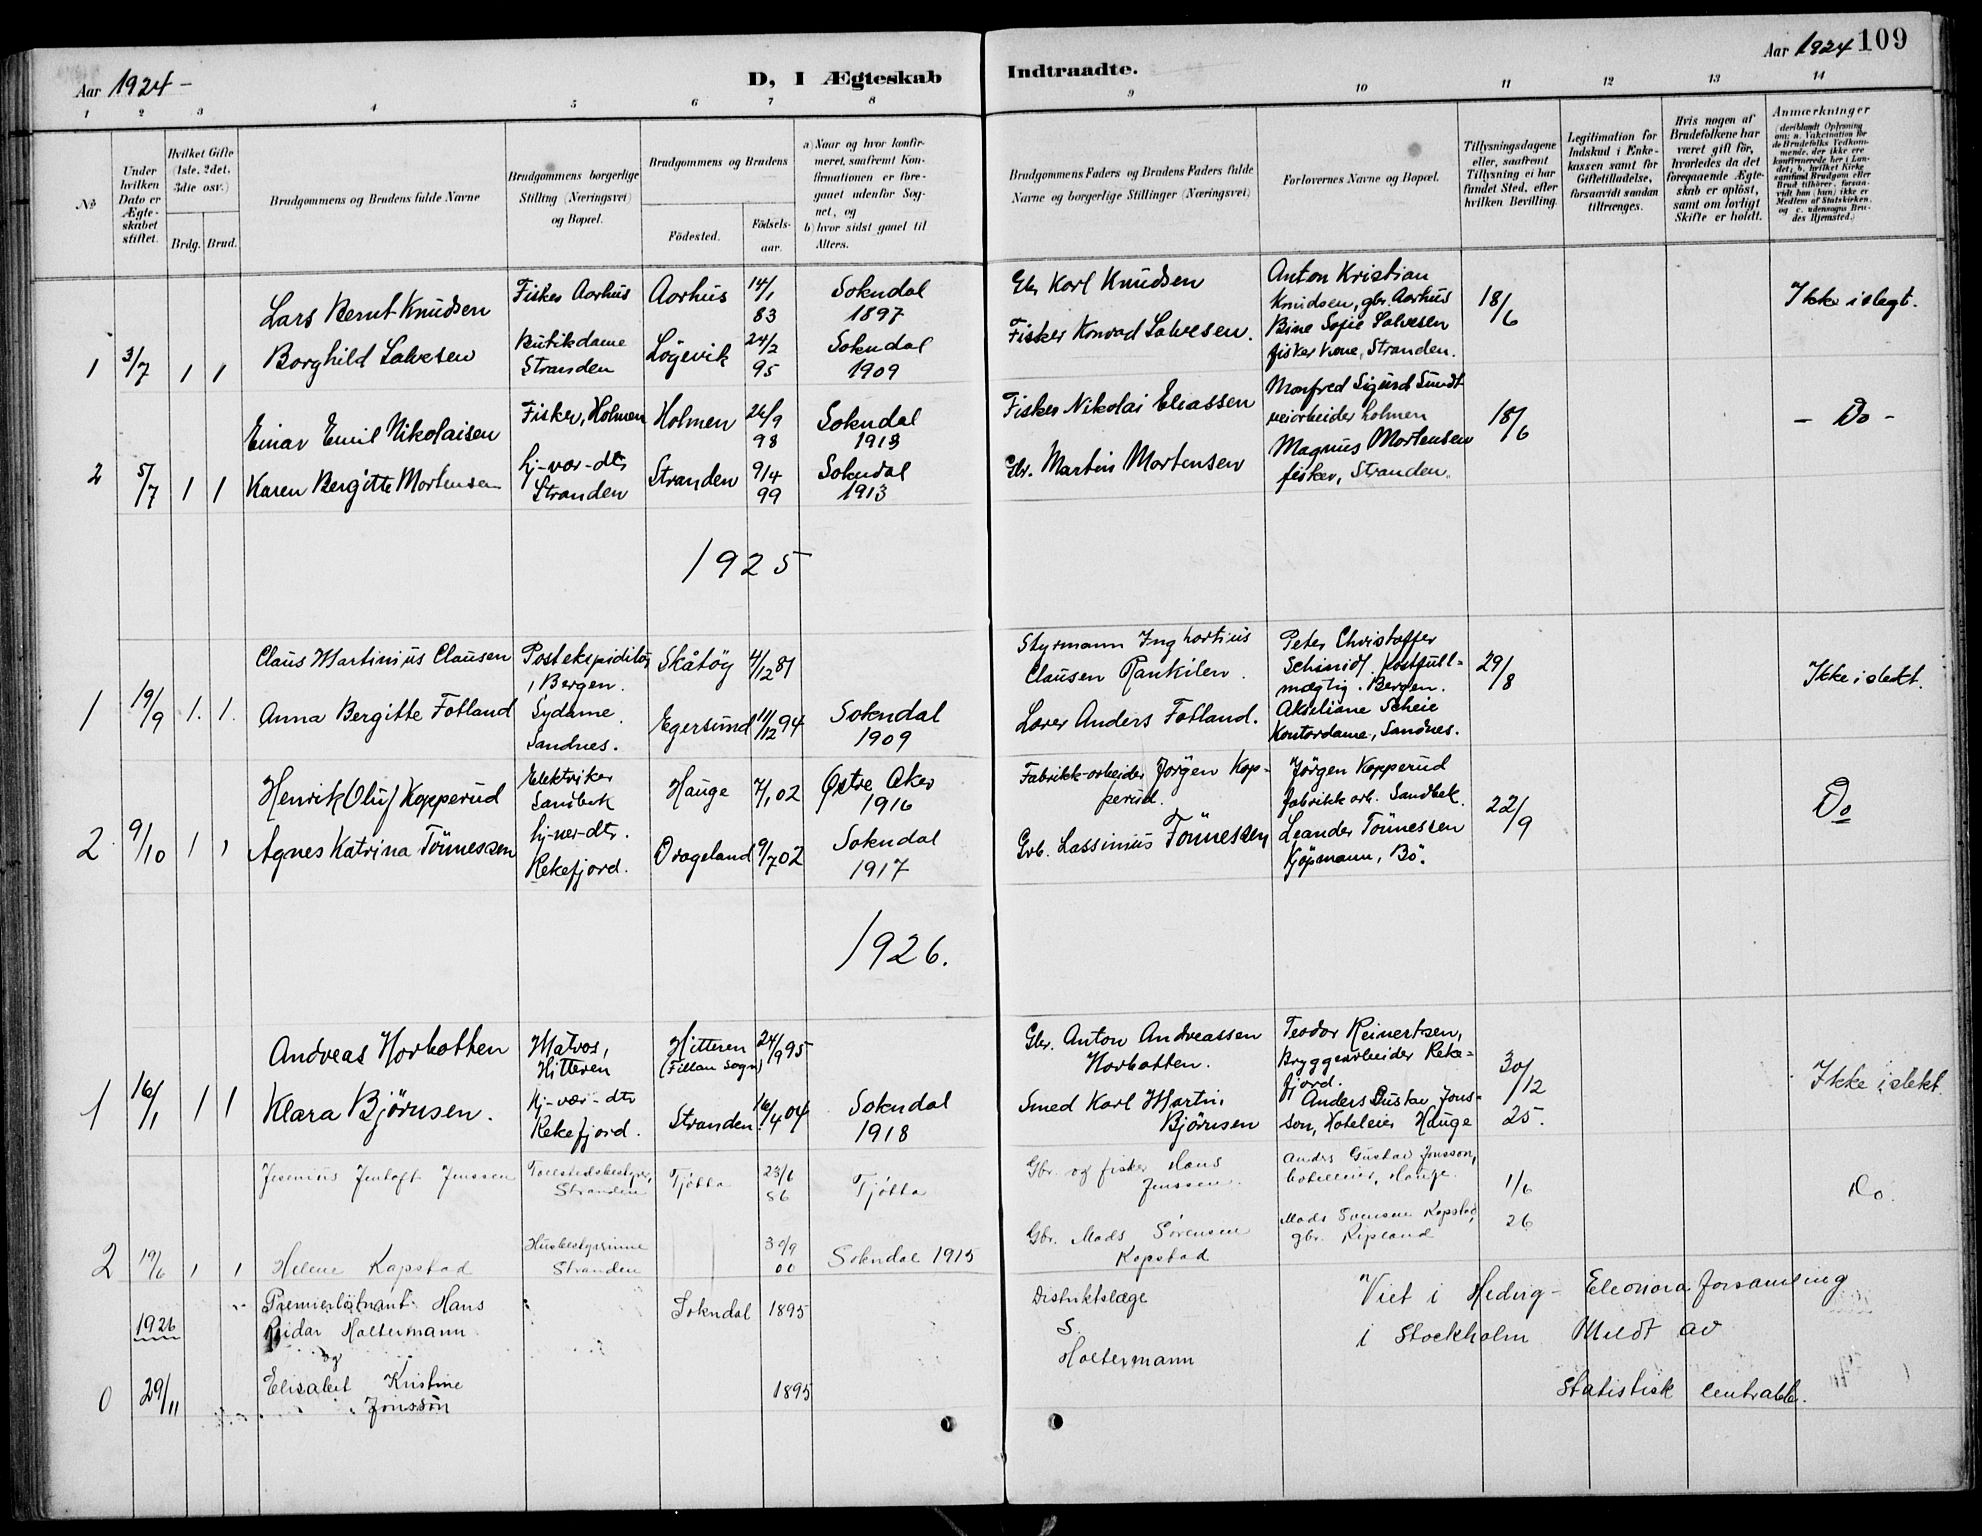 Aar 1924 -
D, I Ægteskab
Indtraadte.
Aar 1924 109
1 2 3 4 5 6 7 8 9 10 11 12 13 14
№
Under hvilken Dato er Ægteskabet stiftet.
Hvilket Gifte (1ste, 2det, 3die osv.)
Brdg. Brud.
Brudgommens og Brudens fulde Navne
Brudgommens borgerlige Stilling (Næringsvei) og Bopæl.
Brudgommens og Brudens
Födested.
Födselsaar.
a) Naar og hvor konfirmeret, saafremt Konfirmationen er foregaaet udenfor Sognet, og
b) hvor sidst gaaet til Alters.
Brudgommens Faders og Brudens Faders fulde Navne og borgerlige Stillinger (Næringsvei)
Forlovernes Navne og Bopæl.
Tillysningsdagene eller, saafremt Tillysning ei har fundet Sted, efter hvilken Bevilling.
Legitimation for Indskud i Enkekassen samt for Giftetilladelse, forsaavidt saadan tiltrænges.
Hvis nogen af Brudefolkene har været gift för, hvorledes da det foregaaende Ægteskab er oplöst, samt om lovligt Skifte er holdt.
Anmærkninger
(deriblandt Oplysning om: a. Vakcination for de Brudefolks Vedkommende, der ikke ere konfirmerede her i Landet; b. hvilket Kirkesamfund Brudgom eller Brud tilhörer, forsaavidt han (hun) ikke er Medlem af Statskirken, og c. udensogns Brudes Hjemsted.)
Lars Bernt Knudsen Fisker Aarhus Aarhus 14/1 83 Sokndal 1897 Gbr Karl Knudsen Anton Kristian Knudsen, gbr. Aarhus 18/6 Ikke i slegt.
1 3/7 1 1 Borghild Salvesen Butikdame Stranden Løgevik 24/2 95 Sokndal 1909 Fisker Konrad Salvesen. Bine Sofie Salvesen fisker kone, Stranden.
Einar Emil Nikolaisen Fisker, Holmen Holmen 26/9 98 Sokndal 1913 Fisker Nikolai Eliassen Manfred Sigurd Sundt veiarbeider holmen 18/6 - Do -
2 5/7 1 1 Karen Bergitte Mortensen hj-vær-dtr Stranden Stranden 9/4 99 Sokndal 1913 Gbr. Martin Mortensen Magnus Mortensen fisker, Stranden.
1925
Claus Martinius Clausen Postekspeditör, Bergen. Skåtöy 4/12 81 Styrmann Ing hortius Clausen Rankilen. Peter Christoffer Schmidt. postfullmægtig. Bergen. 29/8 Ikke i slekt.
1 19/9 1. 1. Anna Bergitte Fotland Sydame. Sandnes. Egersund 11/12 94 Sokndal 1909 Lærer Anders Fotland. Akseliane Scheie Kontordame, Sandnes.
Henrik Oluf Kopperud Elektriker Sandbek Hauge 7/1 02 Østre Aker 1916 Fabrikk-arbeider Jörgen Kopperud. Jörgen Kopperud fabrikkarb. Sandbek. 22/9 Do
2 9/10 1 1 Agnes Katrina Tönnessen hj-vær-dtr. Rekefjord. Drageland 9/7 02 Sokndal 1917 Grb. Lassinius Tönnessen Leander Tönnessen Kjöpmann, Bö.
1926.
Andreas Horbotten Matros, Hitteren Hitteren (Fillan Sogn) 24/9 95 Gbr. Anton Andreassen Horbotten. Teodor Reinertsen, Bryggearbeider Rekefjord. 30/12 25. Ikke i slekt
1 16/1 1 1 Klara Bjørnsen. hj-vær-dtr Rekefjord. Stranden 16/4 04 Sokndal 1918 Smed Karl Martin Bjørnsen Anders Gustav Jonsson, Hoteleier Hauge
Jesenius Jentoft Jenssen Toldstedsbestyrer, Stranden Tjötta 23/6 86 Tjötta Gbr. og fisker Hans Jenssen. Anders Gustav Jonsson, hotelleier, Hauge. 1/6 26 Do.
2 19/6 1 1 Helene Kapstad Husbestyrerinne Stranden 30/9 00 Sokndal 1915 Gbr. Mads Sörensen Kapstad Mads Sörensen Kapstad, gbr. Ripland
1926 Premierlöitnant Hans Reidar Holtermann Sokndal 1895 Distriktslæge S. Holtermann Viet i Hedvig-Eleonora forsamling i Stockholm Meldt av
0 29/11 og Elisabet Kristine Jonsson 1895 Statistisk centralb.